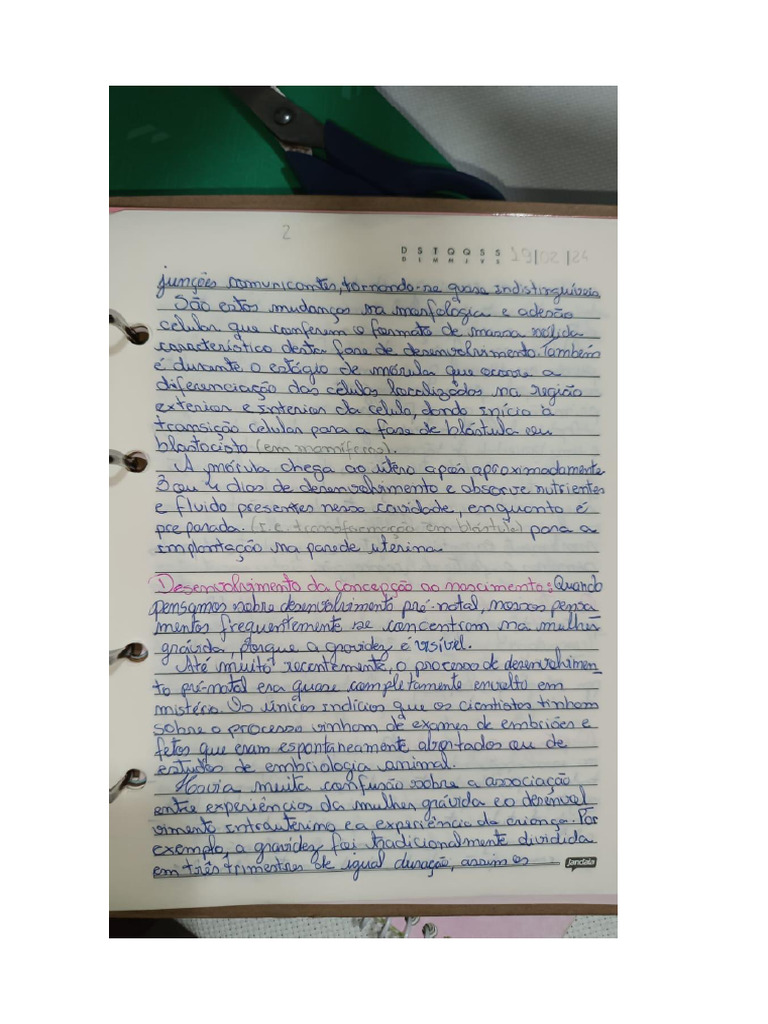 2
D S T Q Q S S 19/02/24
D L M M J V S
junções comunicantes, tornando-se quase indistinguíveis
São estas mudanças na morfologia e adesão
celular que conferem o formato de massa sólida
característico desta fase de desenvolvimento. Também
é durante o estágio de mórula que ocorre a
diferenciação das células localizadas na região
exterior e interior da celula, dando início à
transição celular para a fase de blástula ou
blastocisto (em mamíferos).
A mórula chega ao útero após aproximadamente
3 ou 4 dias de desenvolvimento e absorve nutrientes
e fluido presentes nessa cavidade, enquanto é
preparada. (i.e. transformação em blástula) para a
implantação na parede uterina.
Desenvolvimento da concepção ao nascimento: Quando
pensamos sobre desenvolvimento pré-natal, nossos pensa
mentos frequentemente se concentram na mulher
grávida, porque a gravidez é visível.
Até muito recentemente, o processo de desenvolvimen-
to pré-natal era quase completamente envolto em
mistério. Os únicos indícios que os cientistas tinham
sobre o processo vinham de exames de embriões e
fetos que eram espontaneamente abortados ou de
estudos de embriologia animal.
Havia muita confusão sobre a associação
entre experiências da mulher grávida e o desenvol
vimento intrauterino e a experiência da criança. Por
exemplo, a gravidez foi tradicionalmente dividida
em três trimestres de igual duração, assim os
jandaia